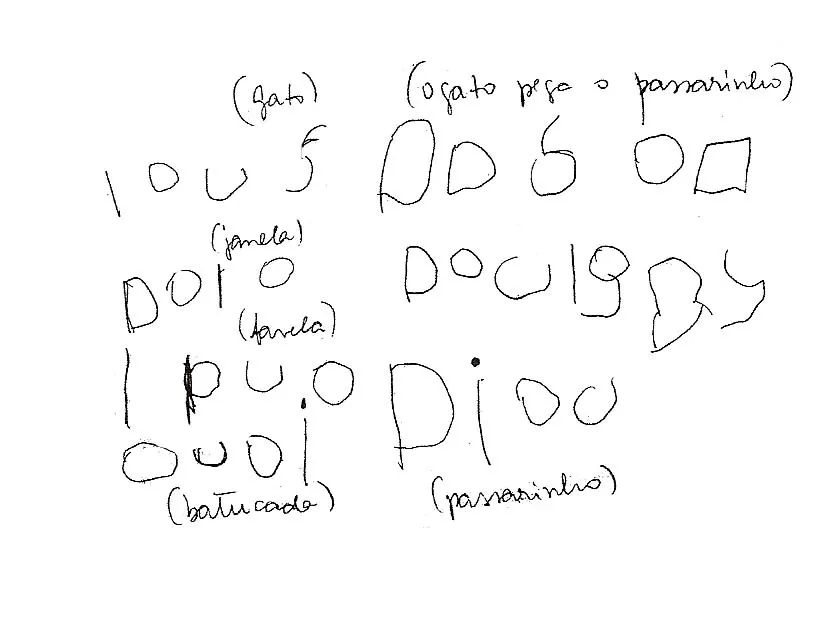 (gato) (o gato pega o passarinho)
I O U S D D 6 O
(janela)
D O I O D O U I 9 B Y
I P U O D i O U
O U O i
(batucada) (passarinho)